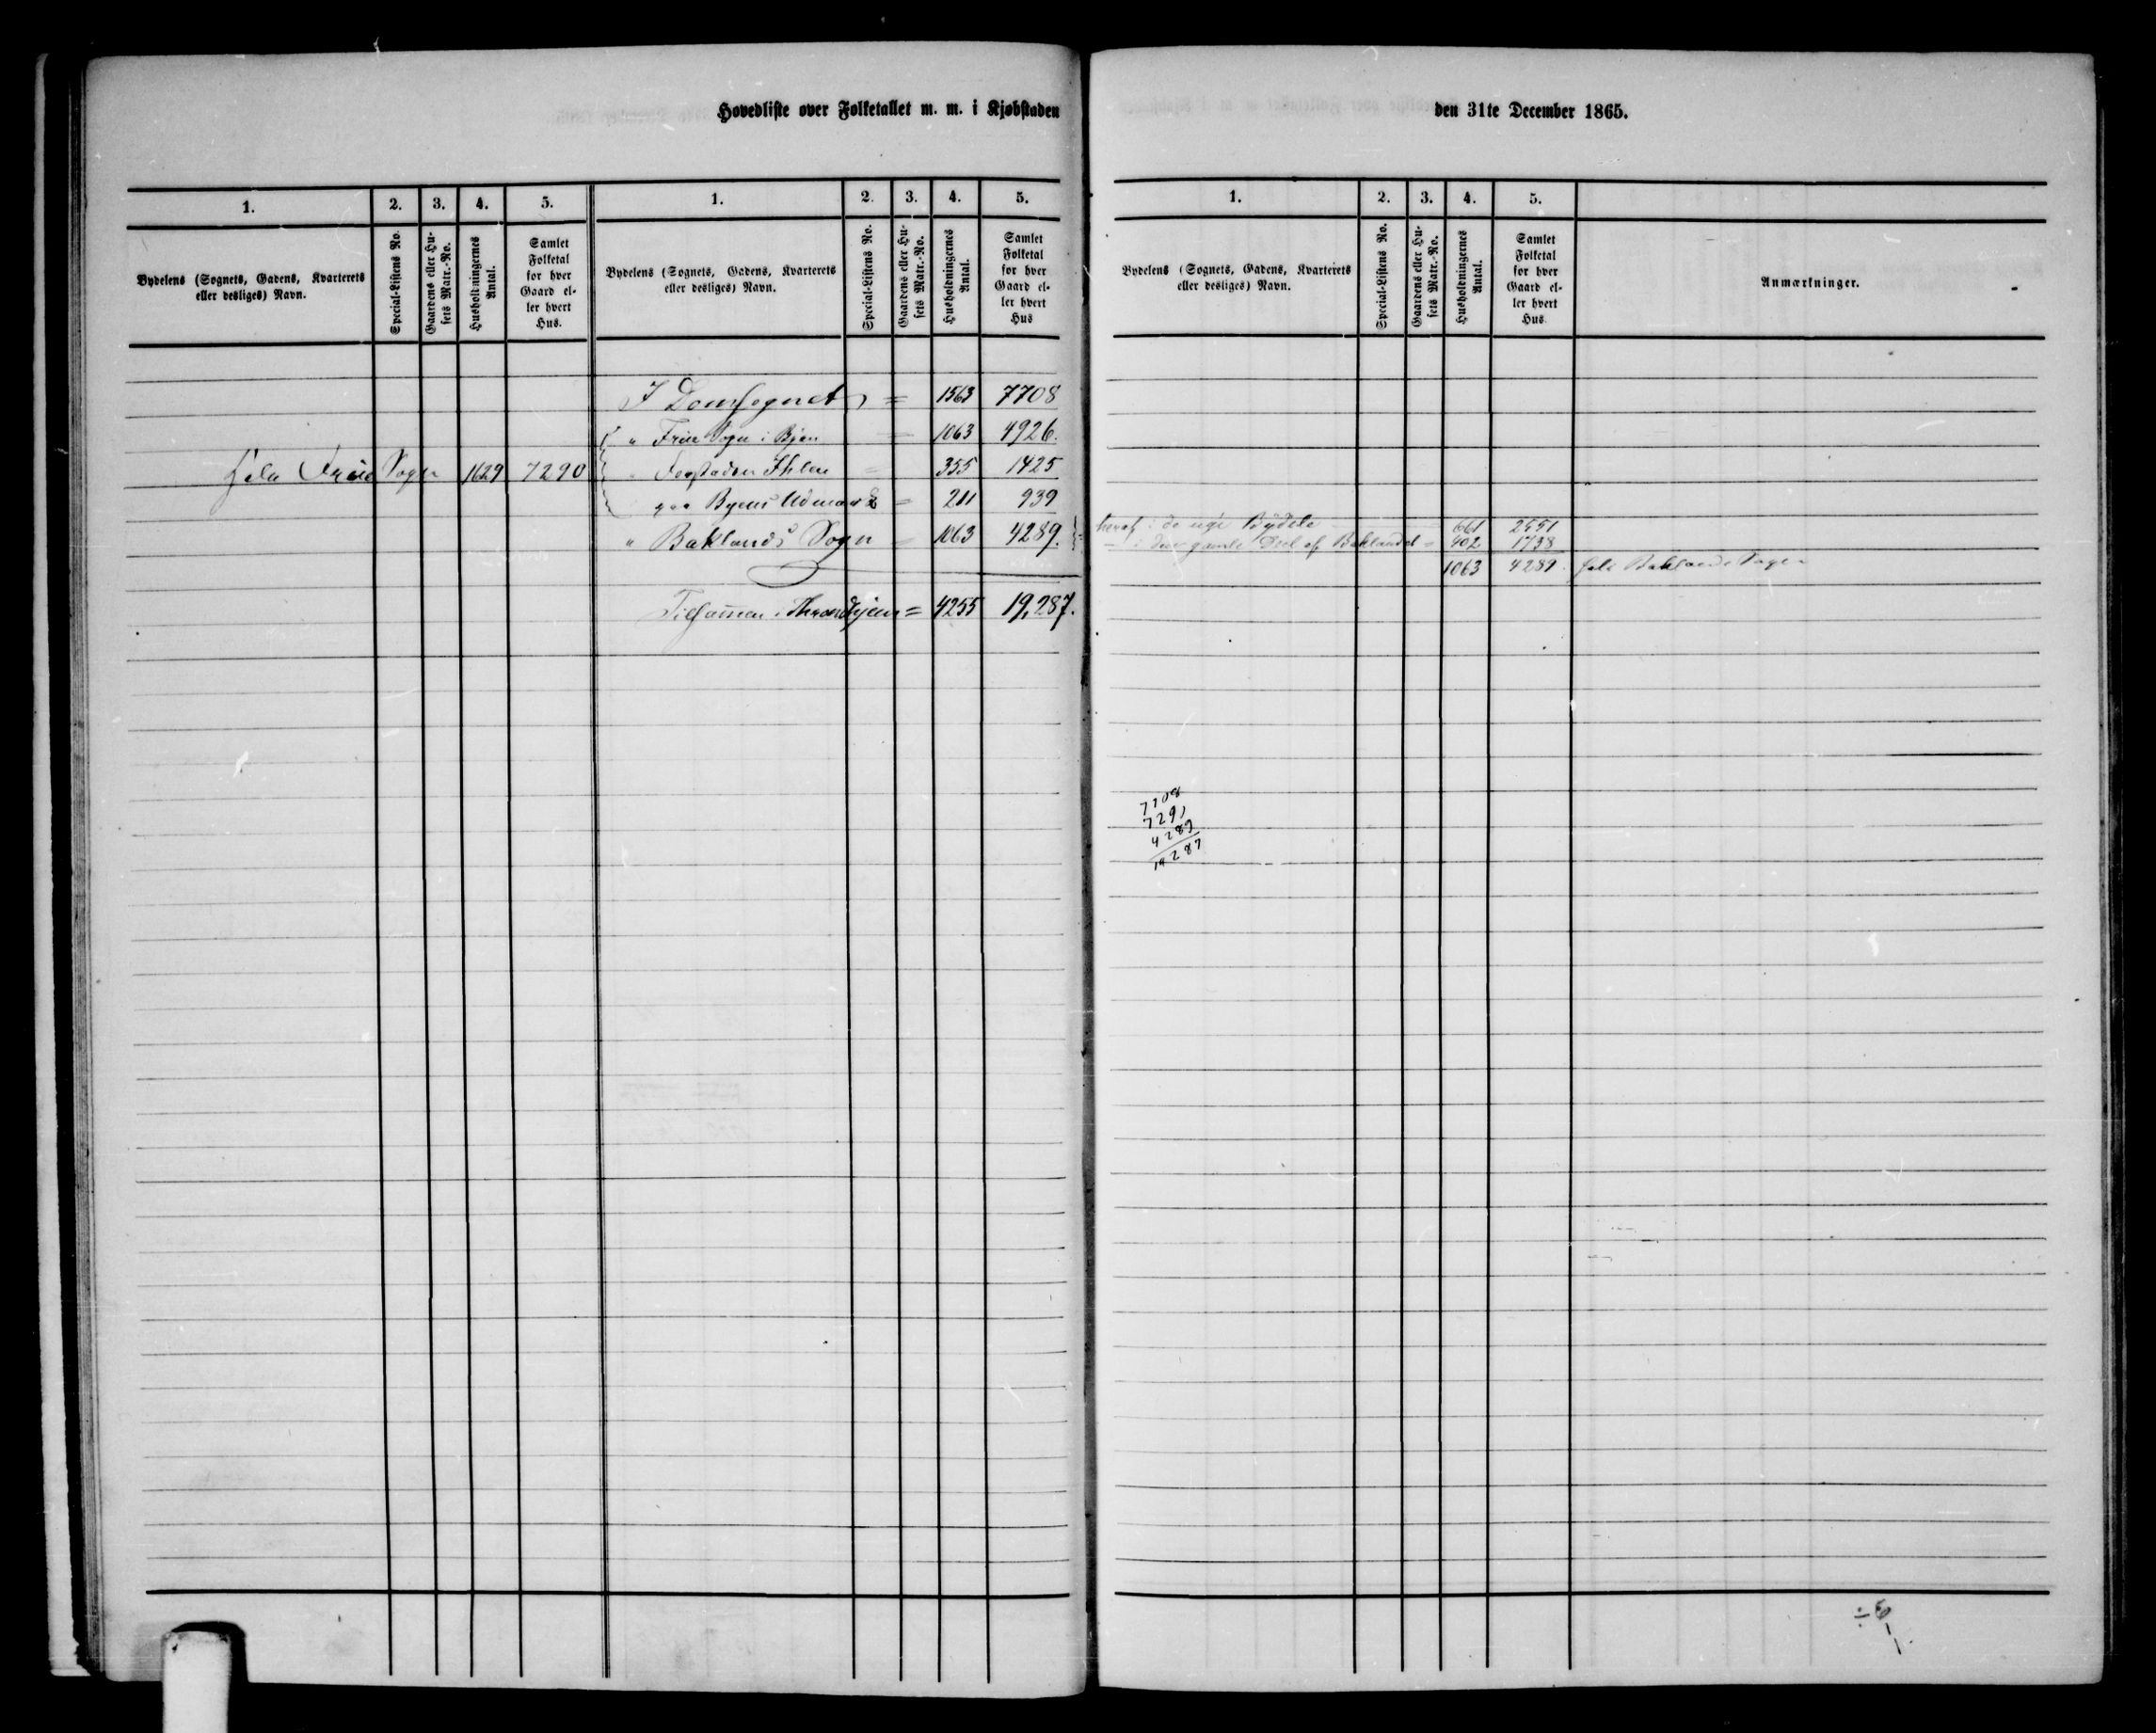 Hovedliste over Folketallet m. m. i Kjøbstaden
den 31te December 1865.
1. 2. 3. 4. 5.
Bydelens (Sognets, Gadens, Kvarterets eller desliges) Navn.
Special-Listens No.
Gaardens eller Husets Matr.-No.
Husholdningernes Antal.
Samlet Folketal for hver Gaard eller hvert Hus.
1. 2. 3. 4. 5.
Bydelens (Sognets, Gadens, Kvarterets eller desliges) Navn.
Special-Listens No.
Gaardens eller Husets Matr.-No.
Husholdningernes Antal.
Samlet Folketal for hver Gaard eller hvert Hus
I Domsognet = 1563 7708
" Frue Sogn i Byen = 1063 4926.
hele Frue Sogn 1629 7290
" Forstaden Ihlen = 355 1425
paa Byens Udmark = 211 939
" Baklands Sogn = 1063 4289.
Tilsammen i Throndhjem = 4255 19,287.
1. 2. 3. 4. 5.
Bydelens (Sognets, Gadens, Kvarterets eller desliges) Navn.
Special-Listens No.
Gaardens eller Husets Matr.-No.
Husholdningernes Antal.
Samlet Folketal for hver Gaard eller hvert Hus
Anmærkninger.
heraf i de nye Bydele 661 2551
— i den gamle Deel af Baklandet = 402 1738
1063 4289. hele Baklands Sogn
7708
7290
4289
19287
÷6